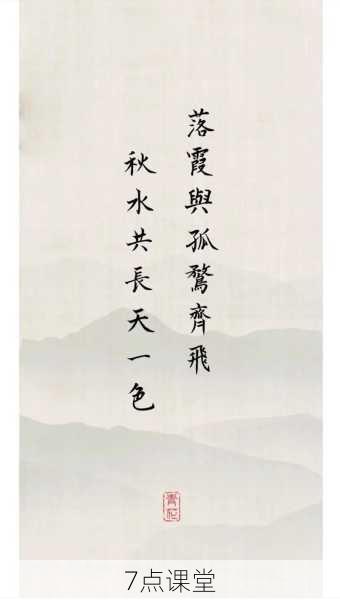 落霞與孤鶩齊飛
秋水共長天一色
7点课堂